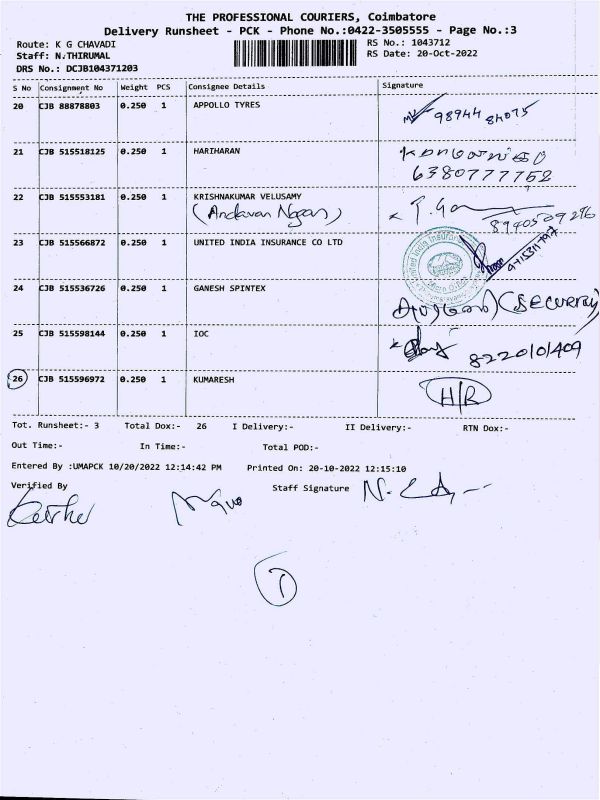 THE PROFESSIONAL COURIERS, Coimbatore
Delivery Runsheet - PCK - Phone No.:0422-3505555 - Page No.:3
Route: K G CHAVADI RS No.: 1043712
Staff: N.THIRUMAL RS Date: 20-Oct-2022
DRS No.: DCJB104371203
S No Consignment No Weight PCS Consignee Details Signature
20 CJB 88878803 0.250 1 APPOLLO TYRES 98944 84075
21 CJB 515518125 0.250 1 HARIHARAN
6380777752
22 CJB 515553181 0.250 1 KRISHNAKUMAR VELUSAMY
(Andavan Nagar) 8940509276
23 CJB 515566872 0.250 1 UNITED INDIA INSURANCE CO LTD
24 CJB 515536726 0.250 1 GANESH SPINTEX
(SECURITY)
25 CJB 515598144 0.250 1 IOC
8220101409
26 CJB 515596972 0.250 1 KUMARESH H/R
Tot. Runsheet:- 3 Total Dox:- 26 I Delivery:- II Delivery:- RTN Dox:-
Out Time:- In Time:- Total POD:-
Entered By :UMAPCK 10/20/2022 12:14:42 PM Printed On: 20-10-2022 12:15:10
Verified By Staff Signature